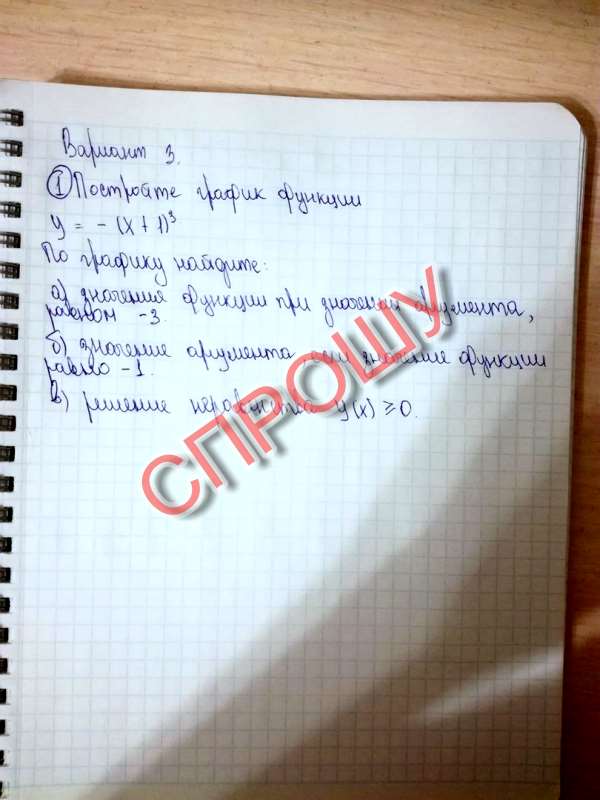 Вариант 3.
① Постройте график функции
y = - (x + 1)³
По графику найдите:
а) значения функции при значении аргумента,
равном -3.
б) значение аргумента, если значение функции
равно -1.
в) решение неравенства y(x) ≥ 0.
СПРОШУ